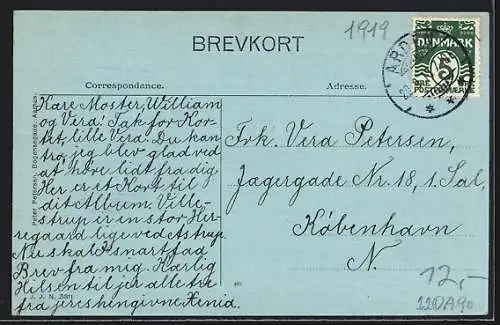 1919
BREVKORT
DANMARK
5
ØRE
POSTFRIMÆRKE
Correspondance.
Adresse.
Kære Moster, William
og Vera! Tak for Kor-
tet, lille Vera. Du kan
tro, jeg blev glad ved
at høre lidt fra dig
Her er et Kort til
dit Album. Ville-
strup er en stor Her-
regaard lige ved Astrup.
Nu skal I snart faa
Brev fra mig. Kærlig
Hilsen til jer alle tre
fra jeres hengivne Xenia.
Frk. Vera Petersen,
Jagergade Nr. 18, 1 Sal,
København
N.
Peter Petersen, Bogensegade, Aarhus.
J. J. N.
12,-
22DA90